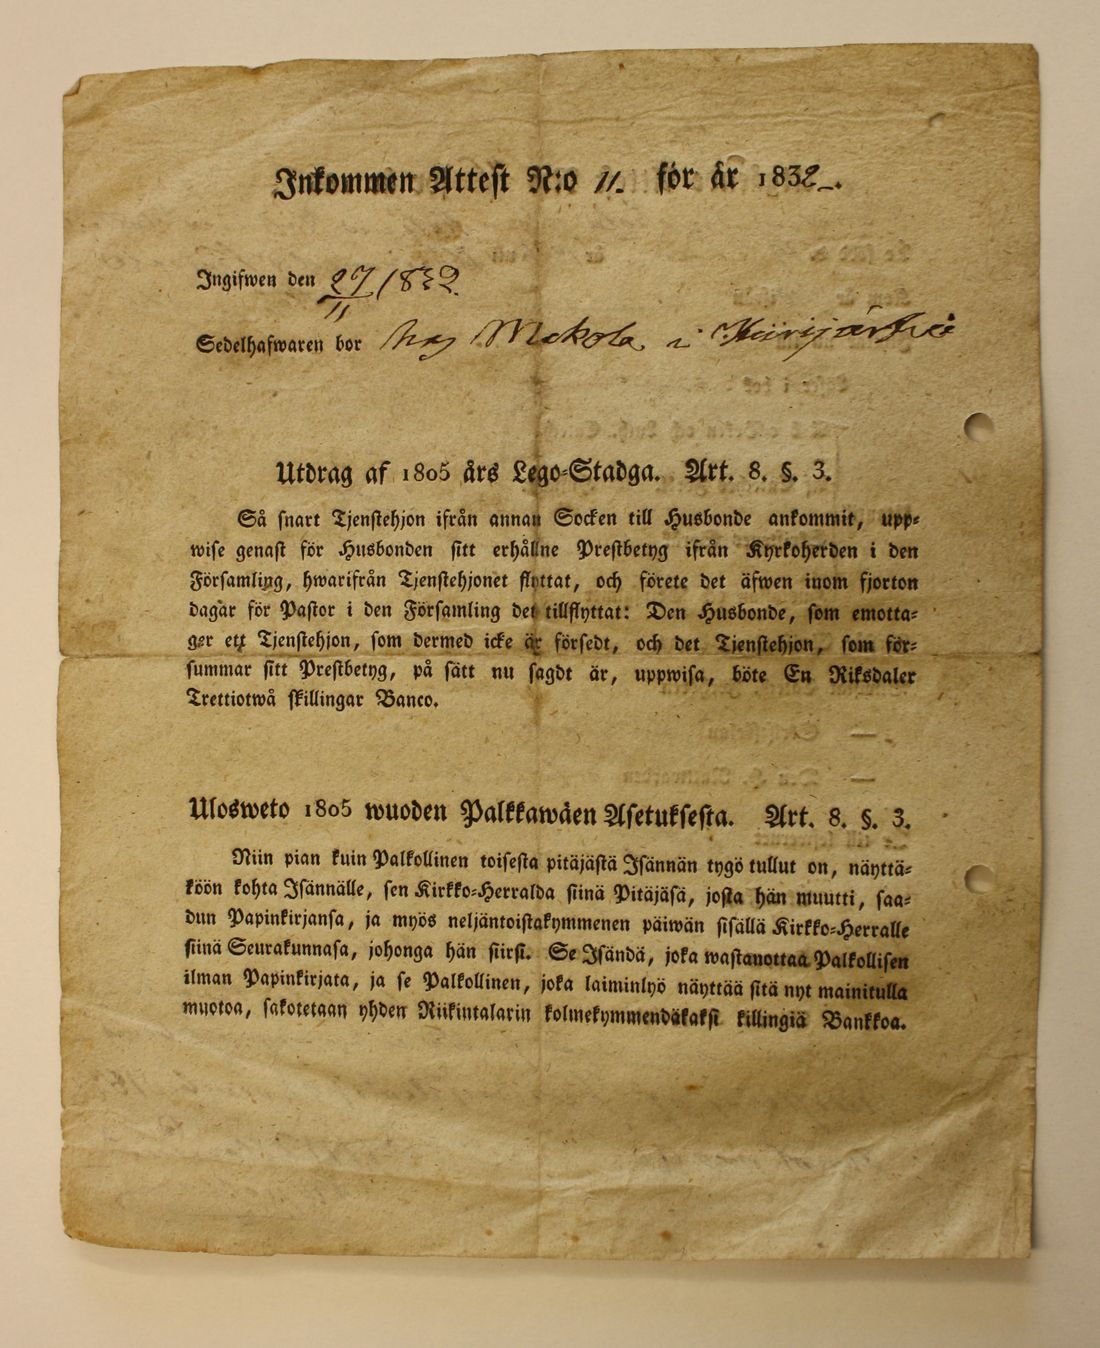 Inkommen Attest N:o 11. för år 1832.
Ingifwen den 27/11 1832.
Sedelhafwaren bor hos Mokola i
Utdrag af 1805 års Lego=Stadga. Art. 8. §. 3.
Så snart Tjenstehjon ifrån annan Socken till Husbonde ankommit, upp=
wise genast för Husbonden sitt erhållne Prestbetyg ifrån Kyrkoherden i den
Församling, hwarifrån Tjenstehjonet flyttat, och förete det äfwen inom fjorton
dagar för Pastor i den Församling det tillflyttat: Den Husbonde, som emotta=
ger ett Tjenstehjon, som dermed icke är försedt, och det Tjenstehjon, som för=
summar sitt Prestbetyg, på sätt nu sagdt är, uppwisa, böte En Riksdaler
Trettiotwå skillingar Banco.
Ulosweto 1805 wuoden Palkkawäen Asetuksesta. Art. 8. §. 3.
Niin pian kuin Palkollinen toisesta pitäjästä Isännän tygö tullut on, näyttä=
köön kohta Isännälle, sen Kirkko=Herralda siinä Pitäjäsä, josta hän muutti, saa=
dun Papinkirjansa, ja myös neljäntoistakymmenen päiwän sisällä Kirkko=Herralle
siinä Seurakunnasa, johonga hän siirsi. Se Isändä, joka wastanottaa Palkollisen
ilman Papinkirjata, ja se Palkollinen, joka laiminlyö näyttää sitä nyt mainitulla
muotoa, sakotetaan yhden Riikintalarin kolmekymmendäkaksi killingiä Bankkoa.